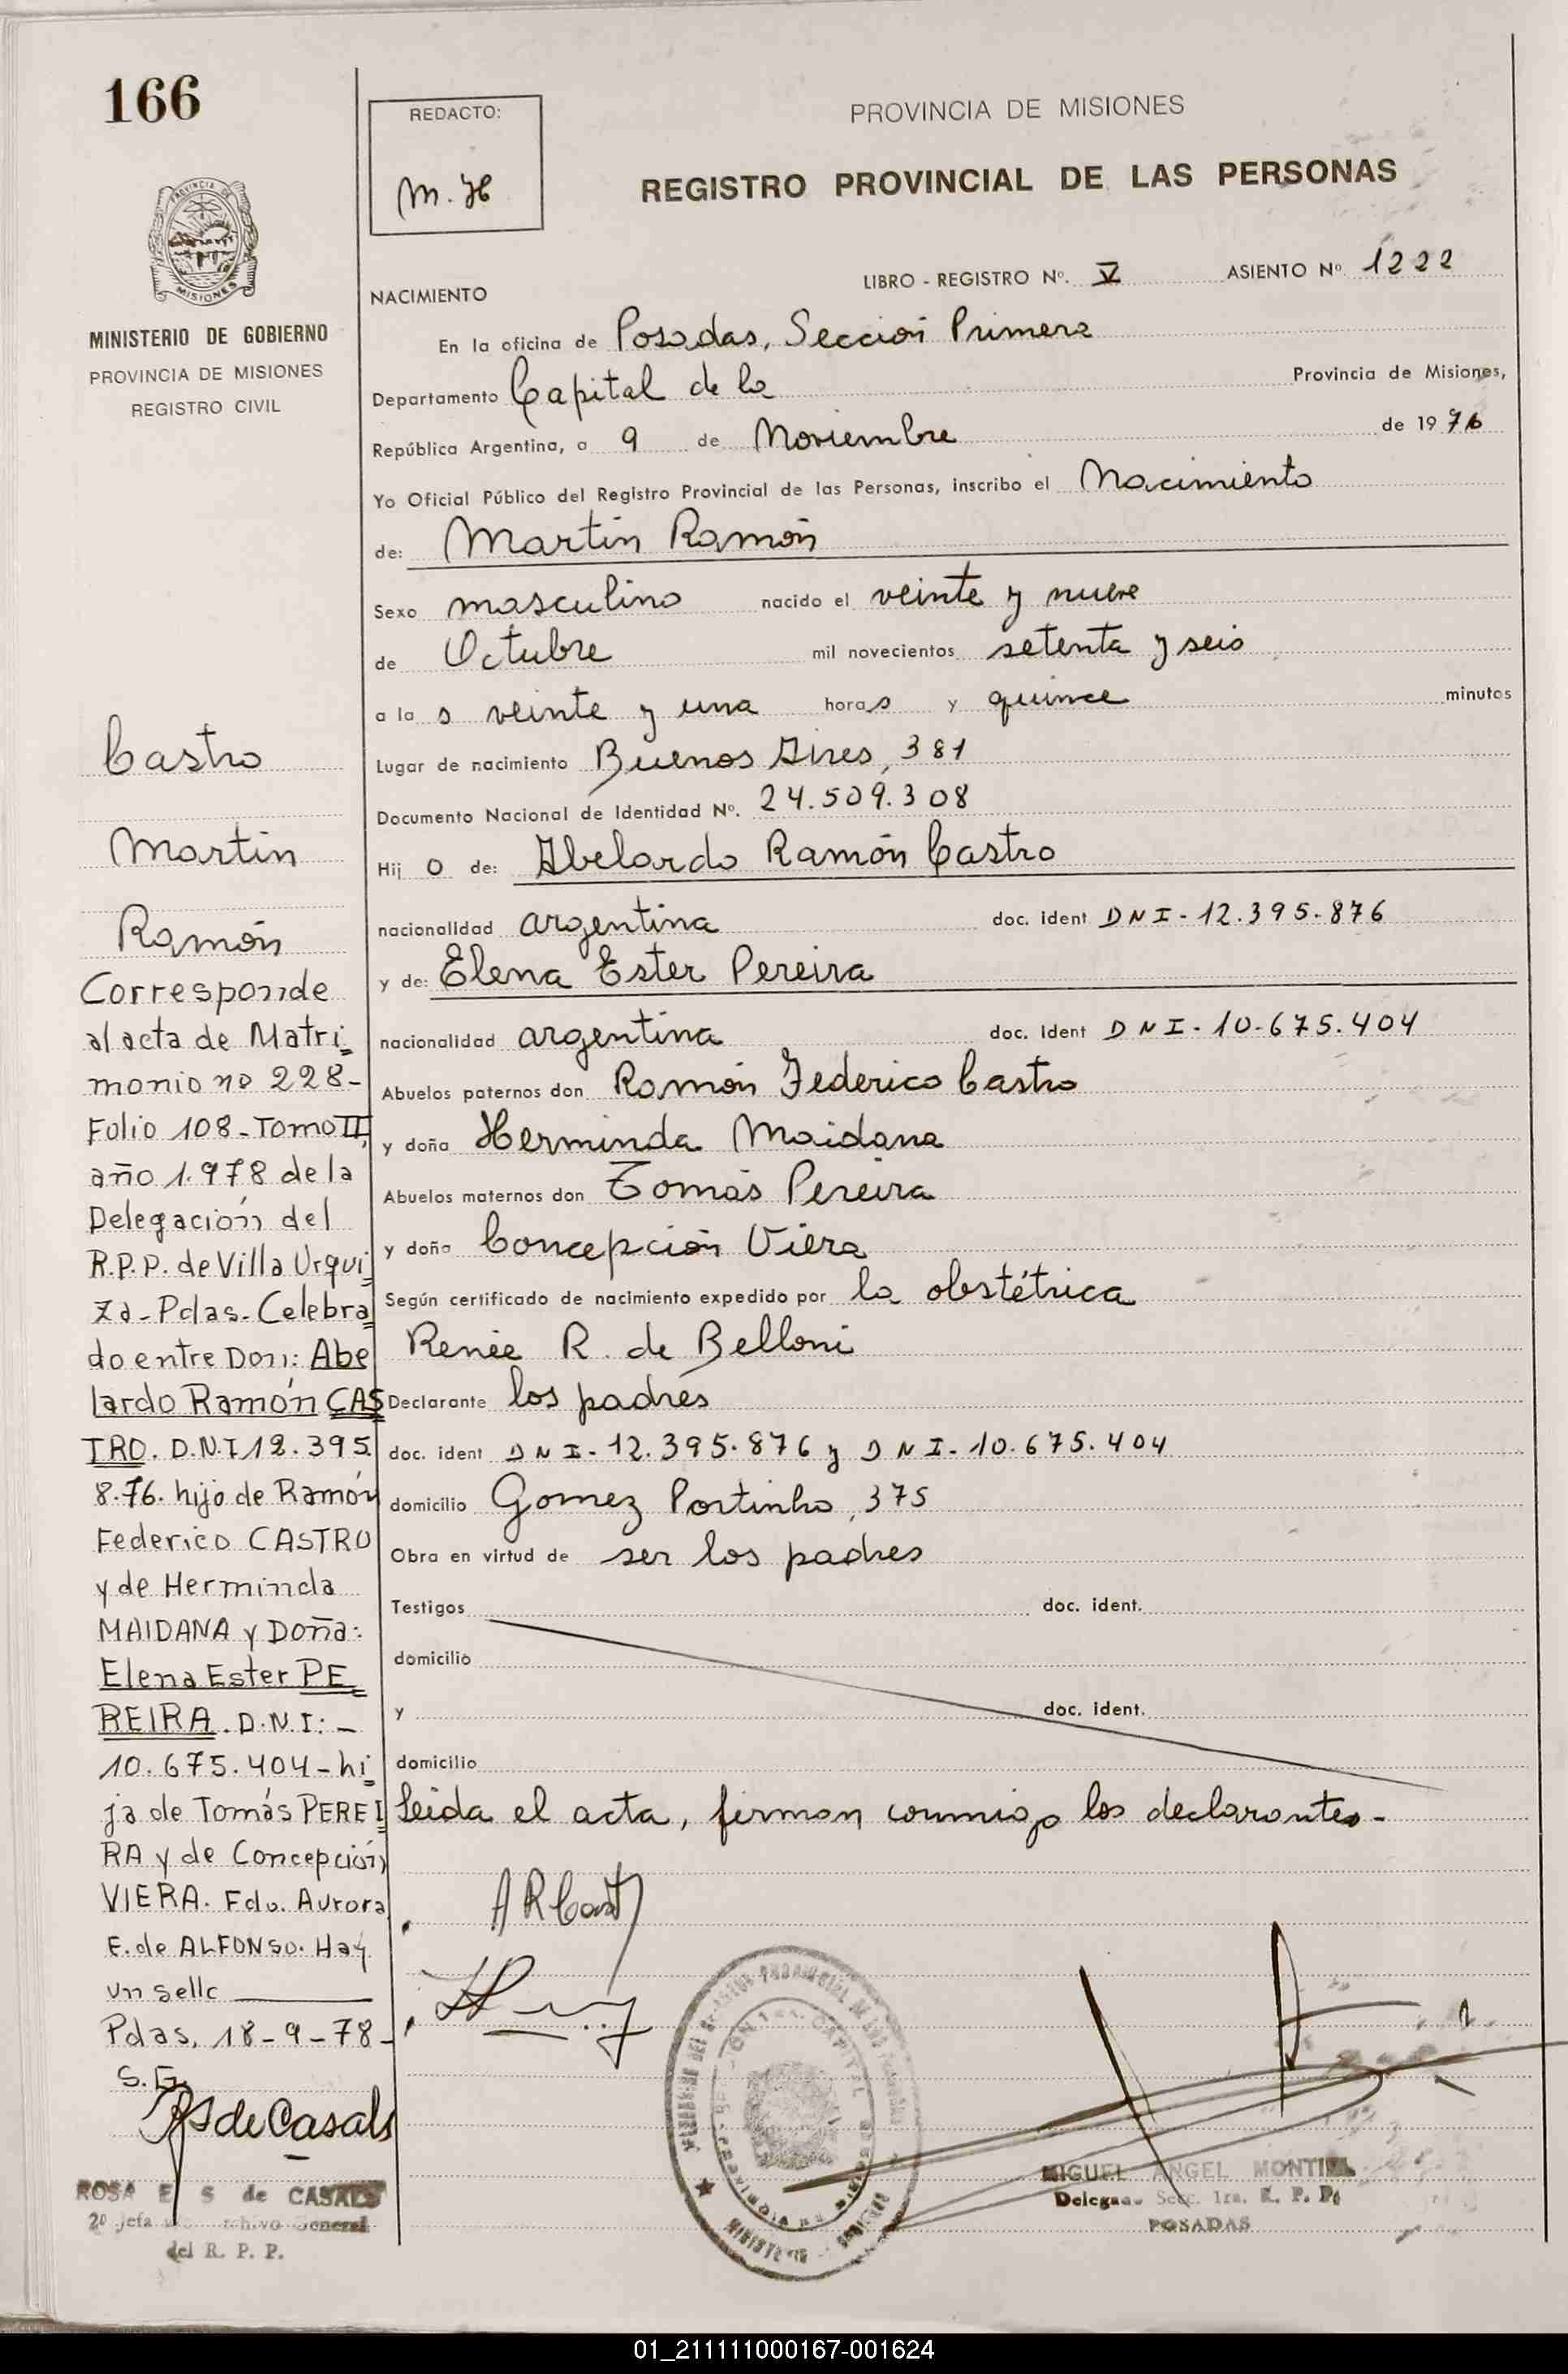 166
REDACTO:
M. H
PROVINCIA DE MISIONES
REGISTRO PROVINCIAL DE LAS PERSONAS
PROVINCIA DE
MISIONES
MINISTERIO DE GOBIERNO
PROVINCIA DE MISIONES
REGISTRO CIVIL
LIBRO - REGISTRO Nº. V ASIENTO Nº. 1222
NACIMIENTO
En la oficina de Posadas, Sección Primera
Departamento Capital de la Provincia de Misiones,
República Argentina, a 9 de Noviembre de 1976
Yo Oficial Público del Registro Provincial de las Personas, inscribo el Nacimiento
de: Martín Ramón
Sexo masculino nacido el veinte y nueve
de Octubre mil novecientos setenta y seis
a la s veinte y una horas y quince minutos
Lugar de nacimiento Buenos Aires, 381
Documento Nacional de Identidad Nº. 24.509.308
Hij o de: Abelardo Ramón Castro
nacionalidad argentina doc. ident DNI-12.395.876
y de: Elena Ester Pereira
nacionalidad argentina doc. ident DNI-10.675.404
Abuelos paternos don Ramón Federico Castro
y doña Herminda Maidana
Abuelos maternos don Tomás Pereira
y doña Concepción Viera
Según certificado de nacimiento expedido por la obstétrica
Renée R. de Belloni
Declarante los padres
doc. ident DNI-12.395.876 y DNI-10.675.404
domicilio Gomez Portinho, 375
Obra en virtud de ser los padres
Testigos doc. ident.
domicilio
y doc. ident.
domicilio
Leída el acta, firman conmigo los declarantes-
ARCast
Castro
Martín
Ramón
Corresponde
al acta de Matri=
monio nº 228-
Folio 108-Tomo II,
año 1.978 de la
Delegación del
R.P.P. de Villa Urqui=
za-Pdas-Celebra=
do entre Don: Abe
lardo Ramón CAS
TRO. D.N.I 12.395.
8.76. hijo de Ramón
Federico CASTRO
y de Herminda
MAIDANA y Doña:
Elena Ester PE=
REIRA. D.N.I:-
10.675.404-hi=
ja de Tomás PEREI=
RA y de Concepción
VIERA. Fdo. Aurora
E. de ALFONSO. Hay
un sello
Pdas, 18-9-78-
S.G.
RS de Casals
ROSA E S de CASALS
2º Jefa Archivo General
del R. P. P.
MINISTERIO
MIGUEL ANGEL MONTIEL
Delegado Secc. 1ra. R. P. P.
POSADAS
01_211111000167-001624